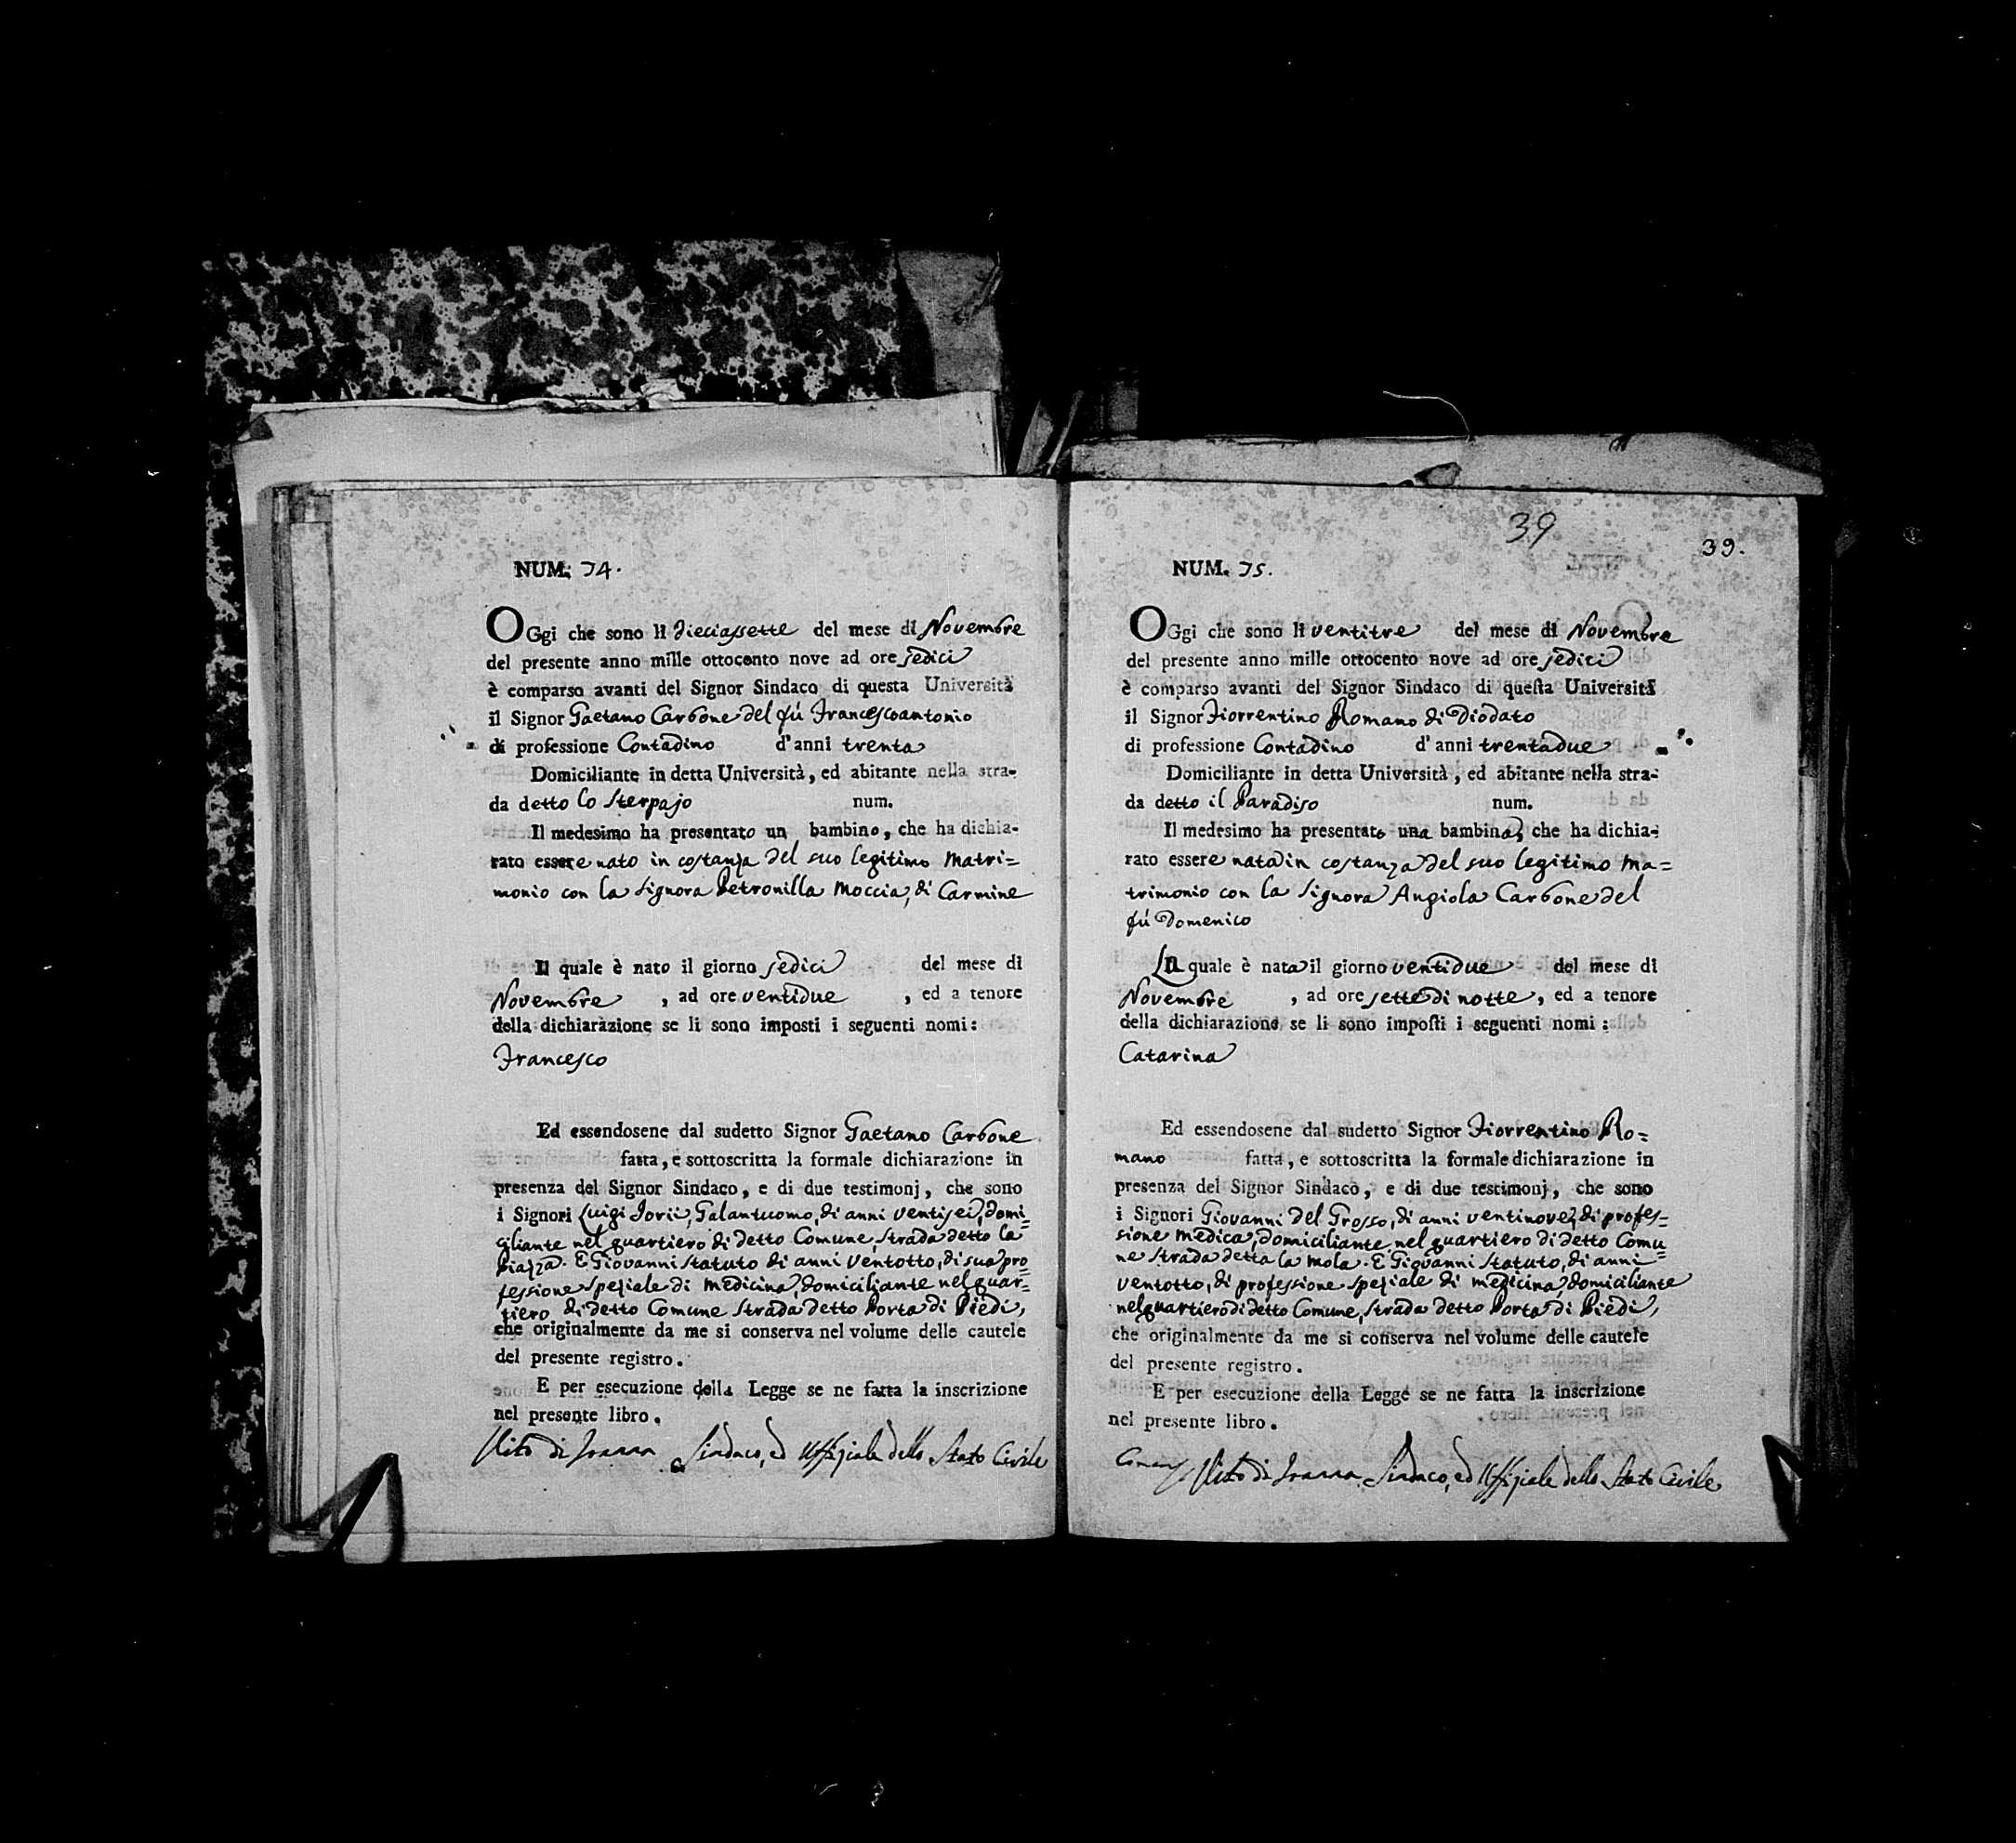 NUM. 74.
OGgi che sono li dieciassette del mese di Novembre
del presente anno mille ottocento nove ad ore sedici
è comparso avanti del Signor Sindaco di questa Università
il Signor Gaetano Carbone del fú Francescoantonio
di professione Contadino d'anni trenta
Domiciliante in detta Università, ed abitante nella stra-
da detto lo Sterpajo num.
Il medesimo ha presentato un bambino, che ha dichia-
rato essere nato in costanza del suo legitimo Matri=
monio con la Signora Petronilla Moccia, di Carmine
Il quale è nato il giorno sedici del mese di
Novembre , ad ore ventidue , ed a tenore
della dichiarazione se li sono imposti i seguenti nomi:
Francesco
Ed essendosene dal sudetto Signor Gaetano Carbone
fatta, e sottoscritta la formale dichiarazione in
presenza del Signor Sindaco, e di due testimonj, che sono
i Signori Luigi Iorii, Galantuomo, di anni ventisei, domi=
ciliante nel quartiero di detto Comune, strada detto la
Piazza. E Giovanni Statuto di anni ventotto, di sua pro=
fessione speziale di medicina, domiciliante nel quar=
tiero di detto Comune strada detto Porta di Piedi,
che originalmente da me si conserva nel volume delle cautele
del presente registro.
E per esecuzione della Legge se ne fatta la inscrizione
nel presente libro.
Vito di Sindaco, ed Uffiziale dello Stato Civile
39
39.
NUM. 75.
OGgi che sono li ventitre del mese di Novembre
del presente anno mille ottocento nove ad ore sedici
è comparso avanti del Signor Sindaco di questa Università
il Signor Fiorrentino Romano di Diodato
di professione Contadino d'anni trentadue
Domiciliante in detta Università, ed abitante nella stra-
da detto il Paradiso num.
Il medesimo ha presentato una bambina, che ha dichia-
rato essere nata in costanza del suo legitimo Ma=
trimonio con la Signora Angiola Carbone del
fú Domenico
La quale è nata il giorno ventidue del mese di
Novembre , ad ore sette di notte, ed a tenore
della dichiarazione se li sono imposti i seguenti nomi:
Catarina
Ed essendosene dal sudetto Signor Fiorrentino Ro=
mano fatta, e sottoscritta la formale dichiarazione in
presenza del Signor Sindaco, e di due testimonj, che sono
i Signori Giovanni del Grosso, di anni ventinove, di profes=
sione medica, domiciliante nel quartiero di detto Comu=
ne strada detta la mola. E Giovanni Statuto, di anni
ventotto, di professione speziale di medicina, domiciliante
nel quartiero di detto Comune, strada detto Porta di Piedi,
che originalmente da me si conserva nel volume delle cautele
del presente registro.
E per esecuzione della Legge se ne fatta la inscrizione
nel presente libro.
Vito di Sindaco, ed Uffiziale dello Stato Civile